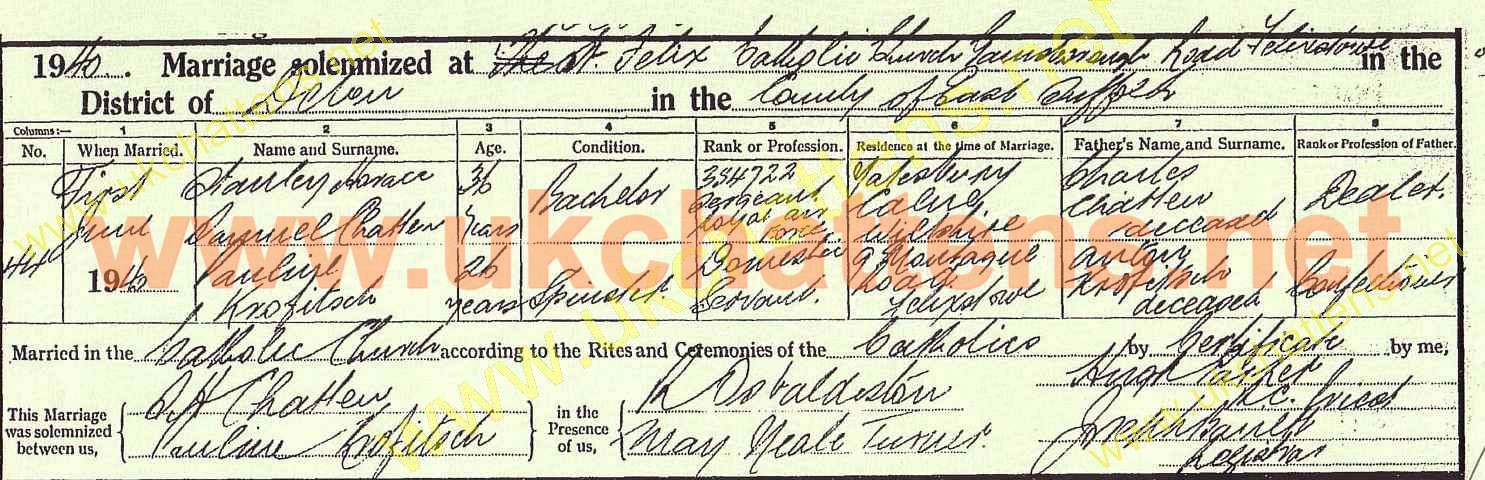 1940. Marriage solemnized at The St Felix Catholic Church Gainsborough Road Felixstowe in the
District of Deben in the County of East Suffolk
Columns:— 1 2 3 4 5 6 7 8
No. When Married. Name and Surname. Age. Condition. Rank or Profession. Residence at the time of Marriage. Father's Name and Surname. Rank or Profession of Father.
44 First June 1940
Stanley Horace Samuel Chatten
36 years
Bachelor
354722 Sergeant Royal Air Force
Yatesbury Calne Wiltshire
Charles Chatten deceased
Dealer
Pauline Krofitsch
26 years
Spinster.
Domestic Servant.
9 Montague Road Felixstowe
Anton Krofitsch deceased
Confectioner
Married in the Catholic Church according to the Rites and Ceremonies of the Catholics by Certificate by me,
This Marriage was solemnized between us,
Chatten
Pauline Krofitsch
in the Presence of us,
K Osbaldeston
May Neale Turner
Hugh Parker
R.C. Priest
Registrar
www.ukchattens.net
www.ukchattens.net
www.ukchattens.net
www.ukchattens.net
www.ukchattens.net